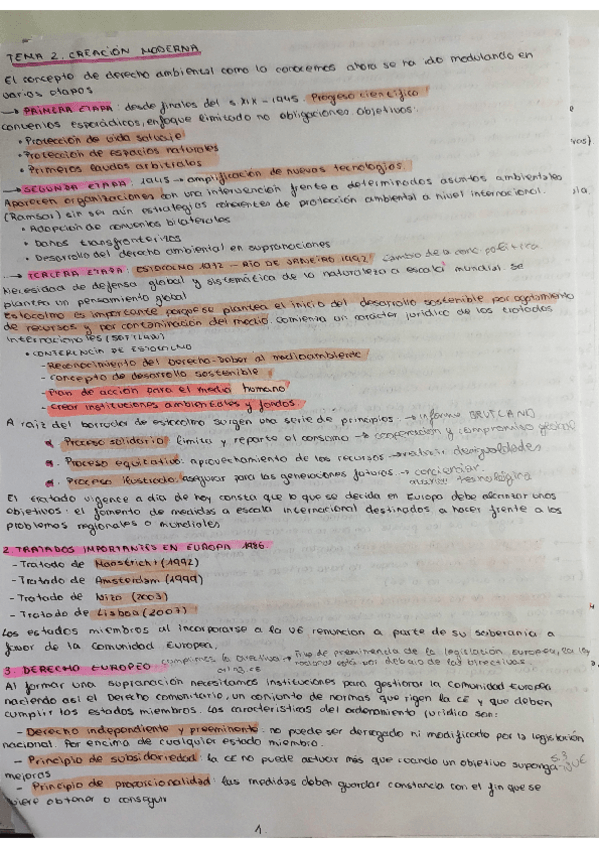 TEMA 2. CREACIÓN MODERNA
El concepto de derecho ambiental como lo conocemos ahora se ha ido modulando en
varias etapas
→ PRIMERA ETAPA: desde finales del s XIX - 1945. Progreso científico
convenios esporádicos, enfoque limitado no obligaciones objetivos:
• Protección de vida salvaje
• Protección de espacios naturales
• Primeros laudos arbitrales
→ SEGUNDA ETAPA: 1945 → amplificación de nuevas tecnologías.
Aparecen organizaciones con una intervención frente a determinados asuntos ambientales
(Ramsar) sin ser aún estrategias coherentes de protección ambiental a nivel internacional.
• Adopción de convenios bilaterales
• Daños transfronterizos
• Desarrollo del derecho ambiental en supranaciones
→ TERCERA ETAPA: ESTOCOLMO 1972 - RIO DE JANEIRO 1992 cambio de a conc. política
Necesidad de defensa global y sistemática de la naturaleza a escala mundial. Se
plantea un pensamiento global
Estocolmo es importante porque se plantea el inicio del desarrollo sostenible por agotamiento
de recursos y por contaminación del medio. comienza un carácter jurídico de los tratados
internacionales
• CONFERENCIA DE ESTOCOLMO
- Reconocimiento del Derecho-Deber al medioambiente
- concepto de desarrollo sostenible
- Plan de acción para el medio humano
- Crear instituciones ambientales y fondos
A raiz del borrador de estocolmo surgen una serie de principios: → informe BRUTLAND
Proceso solidario: limita y reporte el consumo → cooperación y compromiso global
Proceso equitativo: aprovechamiento de los recursos → reducir desigualdades
Proceso ilustrado: asegurar para las generaciones futuras → concienciar.
avance tecnológico
El tratado vigence a día de hoy consta que lo que se decida en Europa debe afrontar unos
objetivos: el fomento de medidas a escala internacional destinados a hacer frente a los
problemas regionales o mundiales
2. TRATADOS IMPORTANTES EN EUROPA 1986
- Tratado de Maastricht (1992)
- Tratado de Amsterdam (1999)
- Tratado de Niza (2003)
- Tratado de Lisboa (2007)
Los estados miembros al incorporarse a la UE renuncian a parte de su soberanía a
favor de la Comunidad Europea.
3. DERECHO EUROPEO
cumplimos la directiva → Ppio de preeminencia de la legislación europea, la ley
nacional está por debajo de las directivas.
Al formar una supranación necesitamos instituciones para gestionar la Comunidad Europea
naciendo así el Derecho comunitario, un conjunto de normas que rigen la CE y que deben
cumplir los estados miembros. Las características del ordenamiento jurídico son:
- Derecho independiente y preeminente: no puede ser derogado ni modificado por la legislación
nacional. Por encima de cualquier estado miembro.
- Principio de subsidariedad: la CE no puede actuar más que cuando un objetivo suponga
mejoras
- Principio de proporcionalidad: las medidas deben guardar constancia con el fin que se
quiere obtener o conseguir
1.